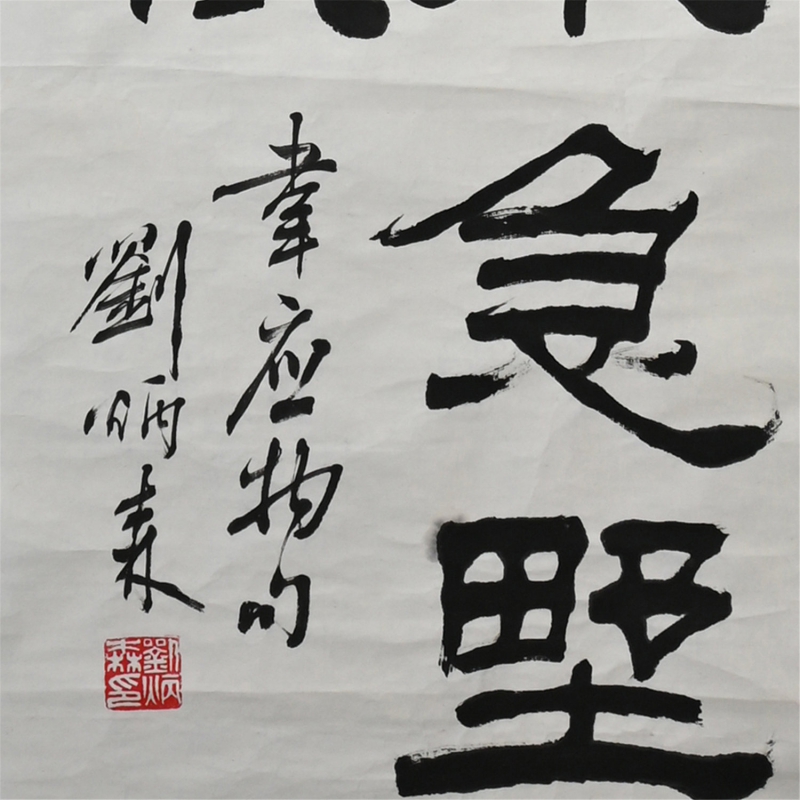 急野
韋应物句
劉炳森
劉炳森印